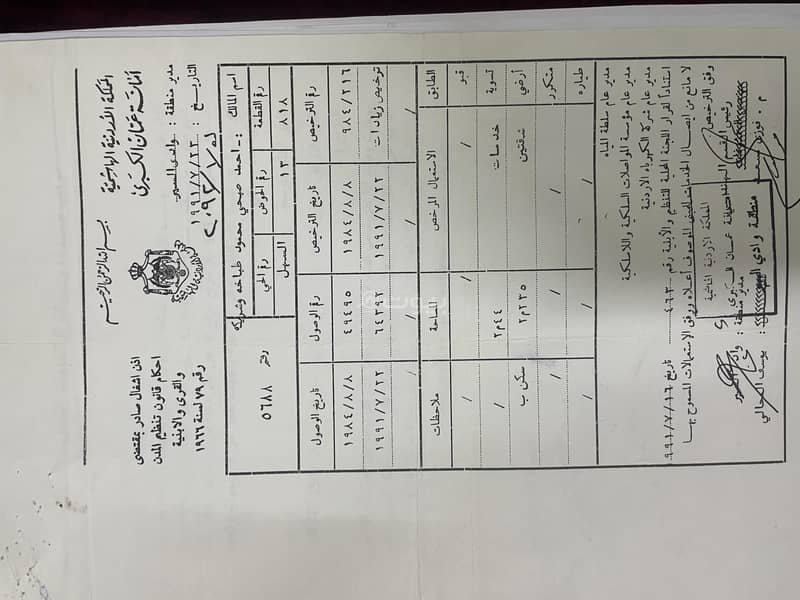 المملكة الأردنية الهاشمية
أمانة عمان الكبرى
مدير منطقة : وادي السير
التاريخ : ١٩٩١/٧/٢٣
بسم الله الرحمن الرحيم
اذن اشغال صادر بمقتضى
احكام قانون تنظيم المدن
والقرى والابنية
رقم ٧٩ لسنة ١٩٦٦
اسم المالك :- احمد صبحي محمود طباخه وشريكه
رقم القطعة رقم الحوض رقم الحي دفتر ٥٦٨٨
٨١٨ ١٣ السهل
رقم الترخيص تاريخ الترخيص رقم الوصول تاريخ الوصول
٩٨٤/٢١٦ ١٩٨٤/٨/٨ ٤٩٤٩٥ ١٩٨٤/٨/٨
ترخيص زيادات ١٩٩١/٧/٢٢ ٦٤٣٩٢ ١٩٩١/٧/٢٢
/ / / /
الطابق الاستعمال المرخص المساحة ملاحظات
قبو / / /
تسوية خدمات ٤٤م٢ /
أرضي شقتين ٢٣٥م٢ سكن ب
متكرر / / /
طياره / / /
مدير عام سلطة المياه
مدير عام مؤسسة المواصلات السلكية واللاسلكية
مدير عام شركة الكهرباء الاردنية
استناداً لقرار اللجنة المحلية للتنظيم والأبنية رقم ٤٦٣ تاريخ ٩٩١/٧/١٦
لا مانع من إيصال الخدمات للمبنى الموصوف أعلاه وفق الاستعمالات المسموح بها
وفق الترخيص
المملكة الاردنية الهاشمية
امانة عمان الكبرى
منطقة وادي السير
مدير منطقة : وادي السير
يوسف المجالي